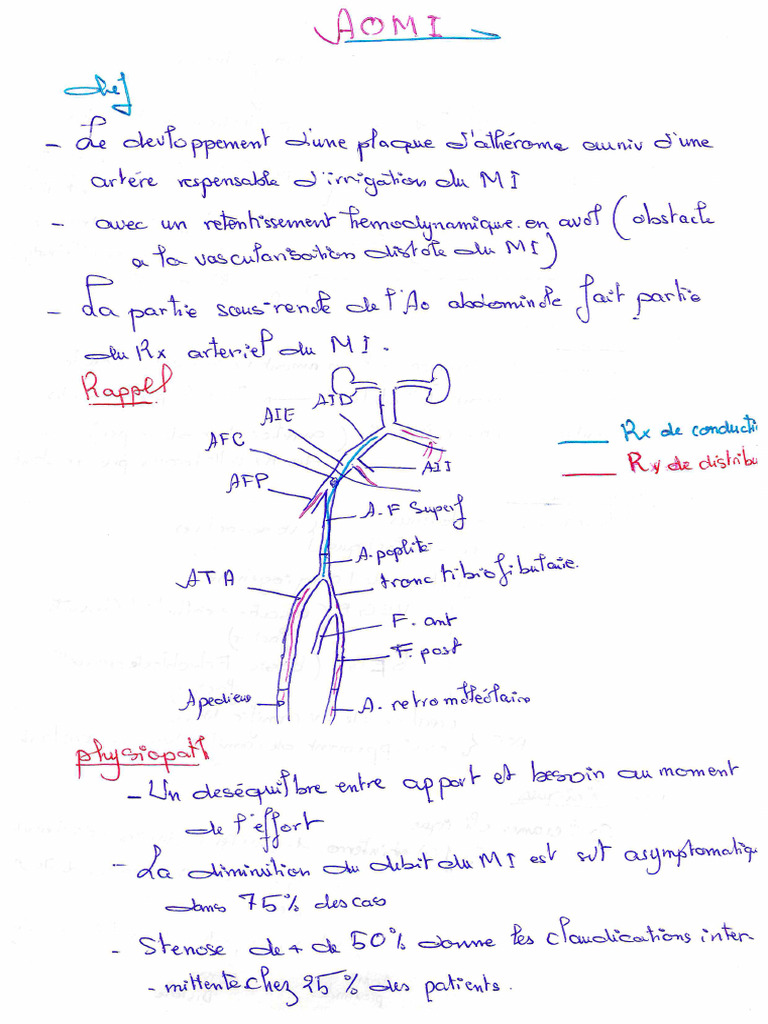 AOMI
Def
- Le devloppement d'une plaque d'athérome auniv d'une
artére respensable d'irrigation du MI
- avec un retentissement hemodynamique en aval (obstacle
a la vascularisation distale du MI)
- La partie sous-renale de l'Ao abdominale fait partie
du Rx arteriel du MI.
Rappel
AID
AIE
AFC
AFP
AII
Rx de conducti
Rx de distribu
A.F Superf
A.poplite
ATA
tronc tibiofibulaire.
F. ant
F. post
Apedieus
A. retromalléolaire
physiopath
- Un deséquilbre entre apport et besoin au moment
de l'effort
- La diminution du debit du MI est svt asymptomatiq
dans 75% des cas
- Stenose de + de 50% donne les claudications inter
- mittente chez 25% des patients.